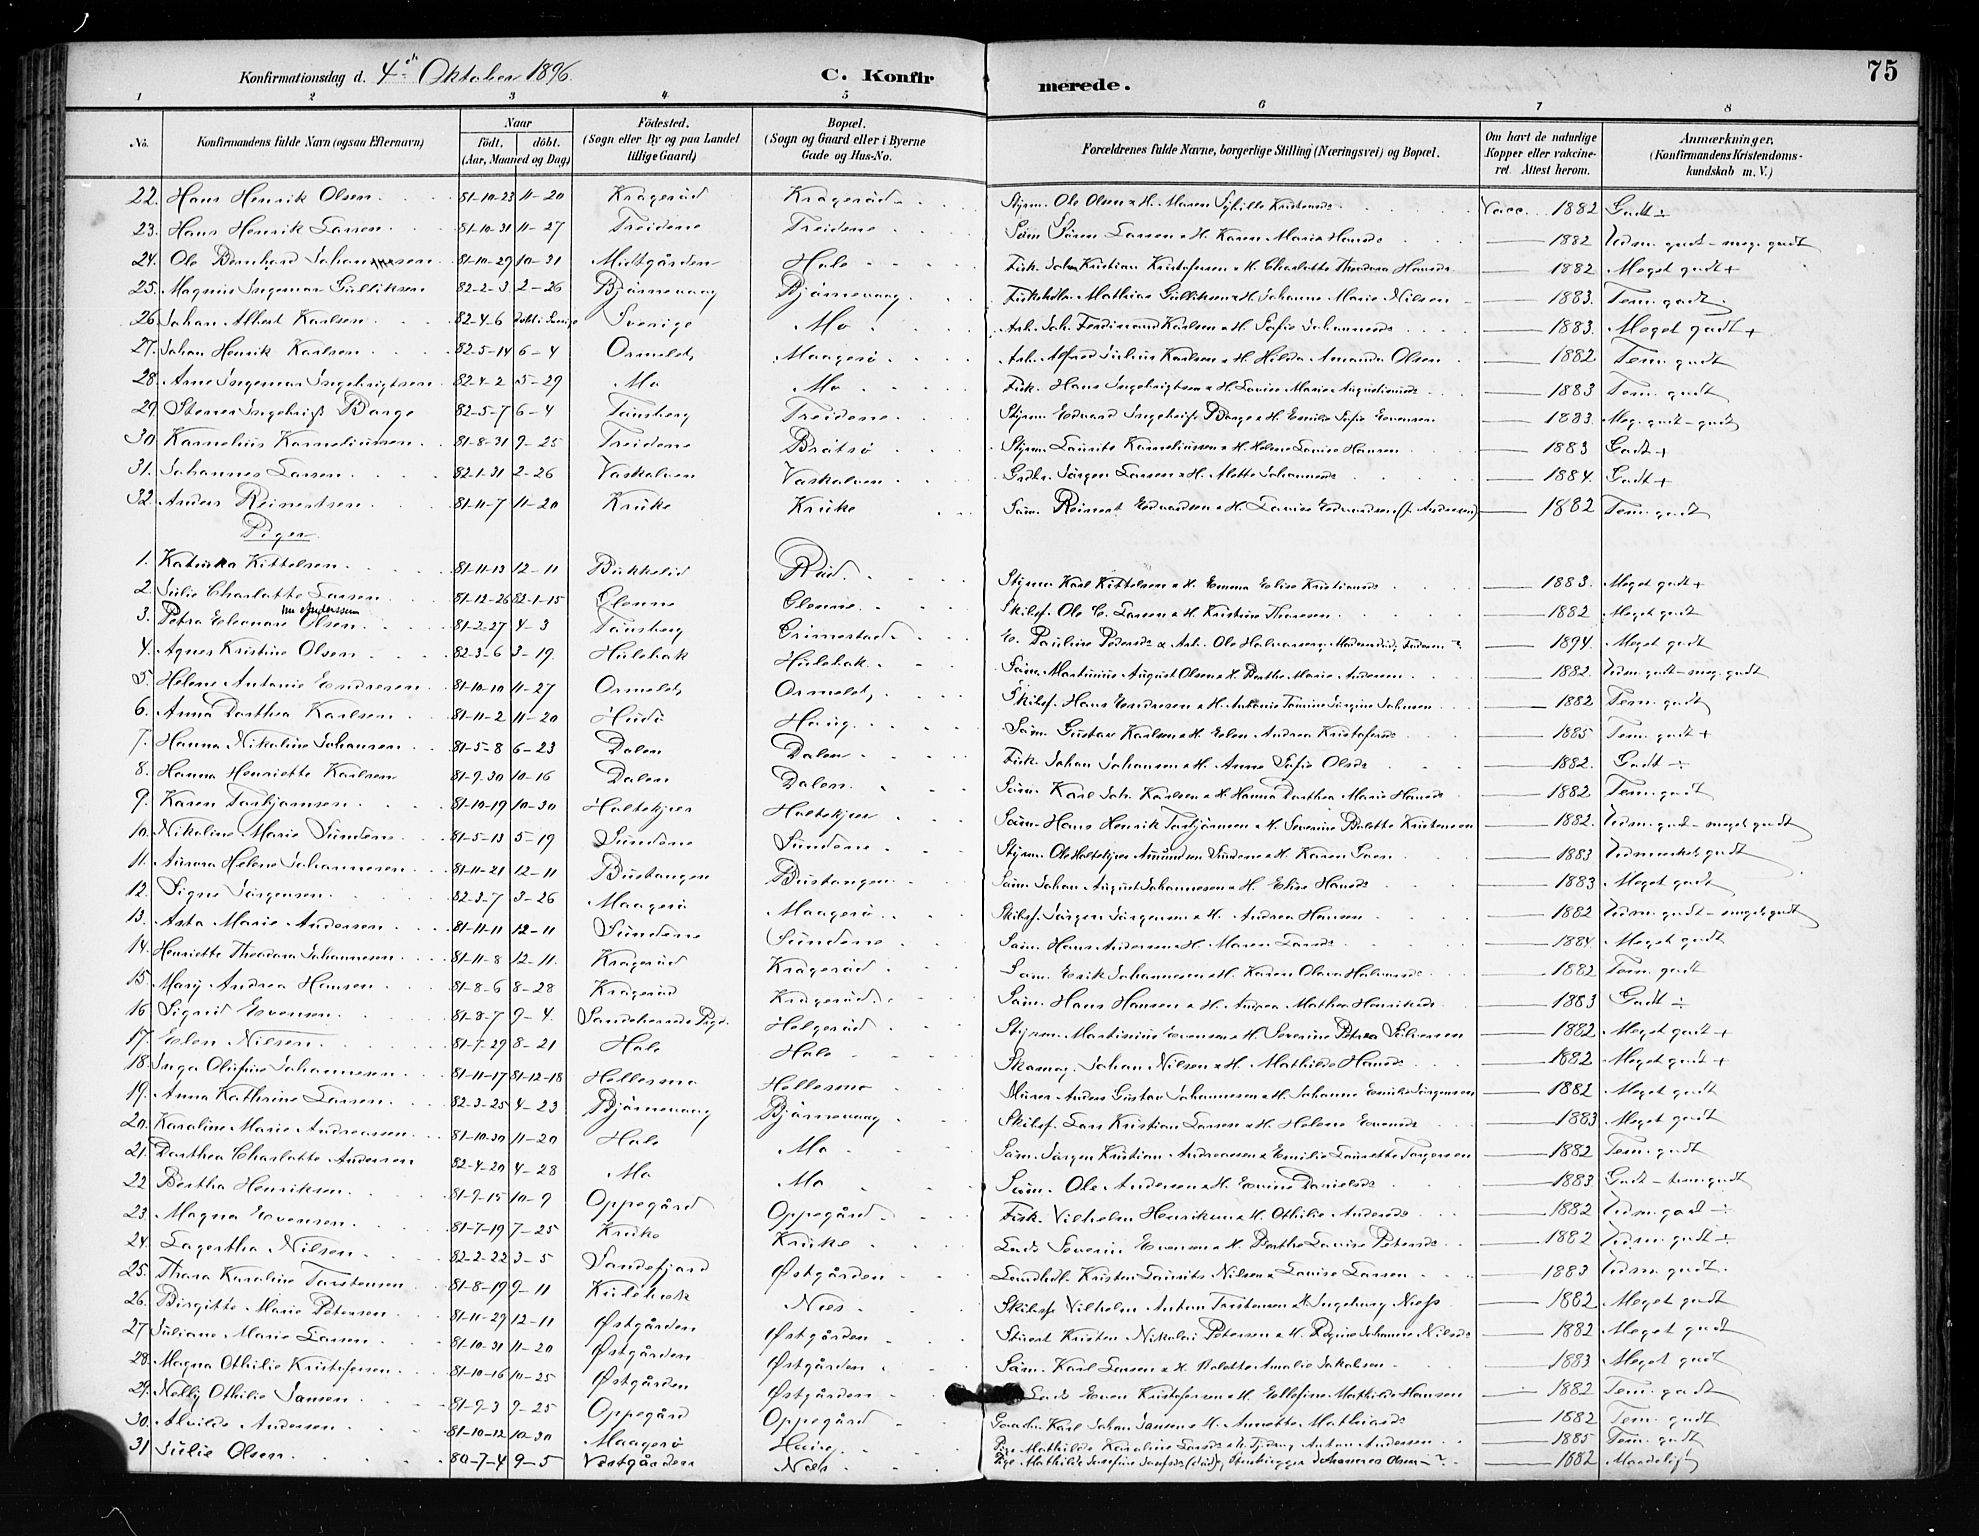 Konfirmationsdag d. 4de Oktober 1896. C. Konfirmerede. 75
1 2 3 4 5 6 7 8
No. Konfirmandens fulde Navn (ogsaa Efternavn) Naar födt. döbt. (Aar, Maaned og Dag) Födested. (Sogn eller By og paa Landet tillige Gaard) Bopæl. (Sogn og Gaard eller i Byerne Gade og Hus-No. Forældrenes fulde Navne, borgerlige Stilling (Næringsvei) og Bopæl. Om havt de naturlige Kopper eller vakcineret. Attest herom. Anmærkninger, (Konfirmandens Kristendomskundskab m. V.)
22. Hans Henrik Olsen 81-10-23 11-20 Krageröd Krageröd Styrm. Ole Olsen & H. Maren Sybille Vacc. 1882 Godt ÷
23. Hans Henrik Larsen 81-10-31 11-27 Treidene Treidene Söm. Sören Larsen & H. Karen Marie Hansd. 1882 Udm. godt - meg. godt
24. Ole Bernhard 81-10-29 10-31 Midtgården Hole Fisk. Johan Kristian Kristofersen & H. Charlotte Theodora Hansd. 1882 Meget godt +
25. Magnus Ingemar Gulliksen 82-2-3 2-26 Bjørnevaag Bjørnevaag Mathias Gulliksen & H. Johanne Marie Nilsen 1883. Tem. godt
26. Johan Albert Karlsen 82-4-6 döbt i Sverige Sverige Mo Arb. Joh. Ferdinand Karlsen & H. Sofie Johannesd. 1883. Meget godt +
27. Johan Henrik Karlsen 82-5-14 6-4 Ormelet Maagerö Arb. Alfred Julius Karlsen & H. Hilda Amanda Olsen 1882 Tem. godt
28. Arne Ingemar Ingebrigtsen 82-4-2 5-29 Mo Mo Fisk. Hans Ingebrigtsen & H. Lovise Marie 1883 Tem. godt
29. Borge 82-5-7 6-4 Tönsberg Treidene Styrm. Edvard Borge & H. Emilie Sofie Evensen 1883. Meg. godt - godt
30. Kornelius Korneliussen 81-8-31 9-25 Treidene Bråtsö Styrm. Laurits Korneliussen & H. Helene Lovise Hansen 1883 Godt +
31. Johannes Larsen 82-1-31 2-26 Vaskalven Vaskalven Jörgen Larsen & H. Alette Johannesd. 1884. Godt +
32. Anders Reinertsen 81-11-7 11-20 Kruke Kruke Söm. Reinert Edvardsen & H. Lovise Edvardsen (f. Andersen) 1882 Tem. godt
Piger
1. Kittelsen 81-11-13 12-11 Bukkelid Röd Styrm. Karl Kittelsen & H. Emma Elise Kristiansd. 1883. Meget godt +
2. Julie Charlotte Larsen 81-12-26 82-1-15 Glenne Glenne Skibsf. Ole C. Larsen & H. Kristine Thoresen 1882 Meget godt
nu Anderssen
3. Petra Eleonore Olsen 81-2-27 4-3 Tönsberg Grimestad E. Pauline Pedersd. & Arb. Ole Halvorsen, Moderen död, Faderen? 1894. Meget godt
4. Agnes Kristine Olsen 82-3-6 3-19. Hulebak Hulebak Söm. Martinius August Olsen & H. Berthe Marie Andersen 1882. Udm. godt - meg. godt
5. Helene Antonie Endresen 81-10-10 11-27 Ormelet Ormelet Skibsf. Hans Endresen & H. Antonie Jörgine Johnsen 1882 Tem. godt
6. Anna Dorthea Karlsen 81-11-2 11-20 Hudö Haug Söm. Gustav Karlsen & H. Elen Andrea Kristofersd. 1885 Tem. godt +
7. Hanna Nikoline Johansen 81-5-8 6-23 Dalen Dalen Fisk. Johan Johansen & H. Anne Sofie Olsd. 1882. Godt ÷
8. Hanna Henriette Karlsen 81-9-30 10-16 Dalen Dalen Söm. Karl Joh. Karlsen & H. Hanna Dorthea Marie Hansd. 1882 Tem. godt
9. Karen Torbjörnsen 81-10-19 10-30 Holtekjær Holtekjær Söm. Hans Henrik Torbjörnsen & H. Severine Bolette Kristensen 1882. Udm. godt - meget godt
10. Nikoline Marie Sundene 81-5-13 5-19 Sundene Sundene Styrm. Ole Holtekjær Amundsen Sundene & H. Karen 1883 Udmerket godt
11. Aurora Helene Johannesen 81-11-21 12-11 Bustangen Bustangen Söm. Johan August Johannesen & H. Elise Hansd. 1883 Meget godt
12. Signe Jörgensen 82-3-7 3-26 Maagerö Maagerö Skibsf. Jörgen Jörgensen & H. Andrea Hansen 1882 Udm. godt - meget godt
13. Asta Marie Andersen 81-11-11 12-11 Sundene Sundene Söm. Hans Andersen & H. Maren Larsd. 1884. Meget godt
14. Henriette Theodora Johannesen 81-11-8 12-11. Krageröd Krageröd Söm. Erik Johannesen & H. Karen Olava Halvorsd. 1882 Tem. godt
15. Mary Andrea Hansen 81-8-6 8-28 Krageröd Krageröd Söm. Hans Hansen & H. Andrea Mathea Henriksd. 1883 Godt ÷
16. Sigrid Evensen 81-8-7 9-4. Sandeherreds Pgd. Holgeröd Styrm. Martinius Evensen & H. Severine Petrea 1882 Meget godt +
17. Elen Nilsen 81-7-29 8-21 Hole Hole Skomag. Johan Nilsen & H. Mathilde Hansd. 1882 Meget godt +
18. Inga Olufine Johannesen 81-11-17 81-12-18 Hellesmo Hellesmo Murer Anders Gustav Johannesen & H. Johanne Emilie Jörgensen 1882 Meget godt
19. Anna Kathrine Larsen 82-3-25 4-23 Bjørnevaag Bjørnevaag Skibsf. Lars Kristian Larsen & H. Helene Evensd. 1883 Meget godt
20. Karoline Marie Andreassen 81-10-30 11-20 Hole Mo Söm. Jörgen Kristian Andreassen & Emilie Laurette Torgersen 1882 Tem. godt
21. Dorthea Charlotte Andersen 82-4-20 4-28 Mo Mo Söm. Ole Andersen & H. Danielsd. 1883 Godt - tem. godt
22. Bertha Henriksen 81-9-15 10-9 Oppegård Oppegård Fisk. Vilhelm Henriksen & H. Othilie Andersd. 1882 Udm. godt ÷
23. Magna Evensen 81-7-19 7-25 Kruke Kruke Lods Severin Evensen & H. Berthe Lovise Petersd. 1882 Udm. godt ÷
24. Lagertha Nilsen 82-2-22 3-5 Sandefjord Østgården Landhdl. Kristen Laurits Nilsen & Lovise Larsen 1883 Udm. godt.
25. Thora Karoline Torstensen 81-8-19 9-11 Hulebak Næs Skibsf. Vilhelm Anton Torstensen & H. Ingeborg Næss 1882 Meget godt
26. Birgitte Marie Petersen 81-11-29 12-11 Østgården Østgården Stuert Kristen Nikolai Petersen & H. Regine Johanne Nilsd. 1882 Meget godt
27. Juliane Marie Larsen 81-10-31 11-20 Østgården Østgården Söm. Karl Larsen & H. Bolette Amalie Jakobsen 1883 Meget godt
28. Magna Othilie Kristofersen 81-10-16 10-25 Østgården Østgården Lods Even Kristofersen & H. Ellefine Mathilde Hansen 1882 Tem. godt
29. Nelly Othilie Jansen 81-9-3 9-25 Oppegård Oppegård Karl Johan Jansen & H. Annette Mathiasd. 1882 Tem. godt
30. Alvilde Andersen 81-10-12 10-30 Maagerö Haug Pige Mathilde Karoline Larsd. & Anton Andersen 1885 Tem. godt
31. Julie Olsen 80-7-4 9-5 Vestgården Næs Pige Mathilde Josefine (död), Stenhugger Johannes Olsen -? 1882 Maadelig